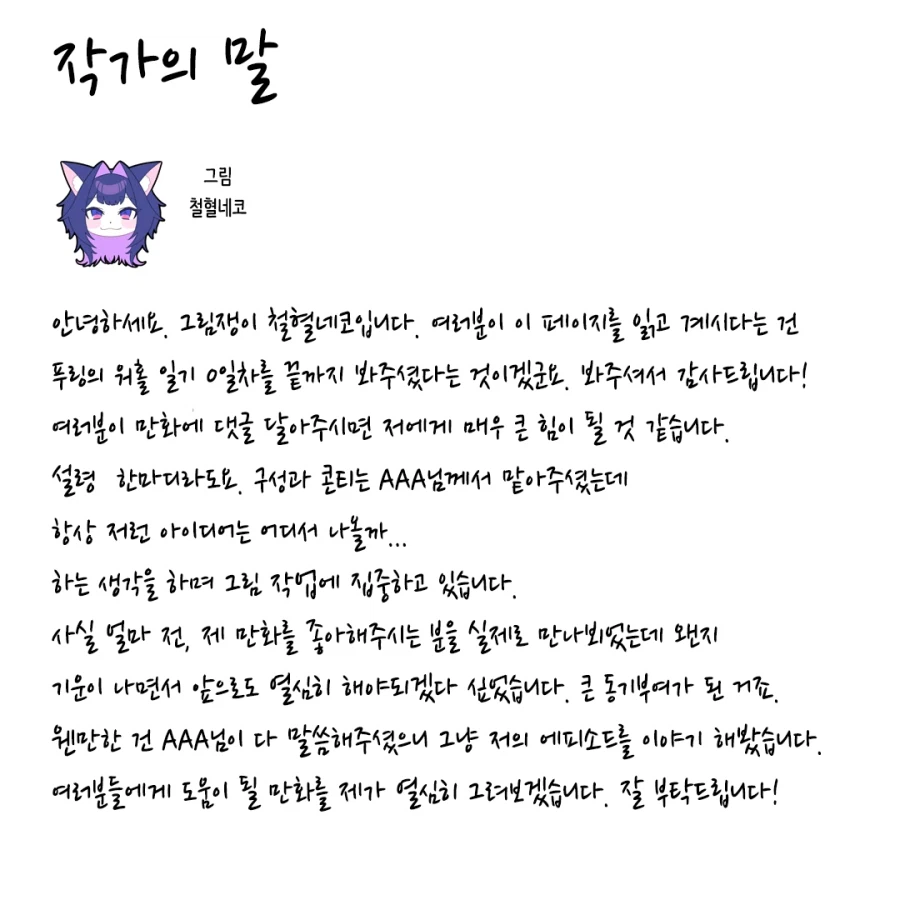 작가의 말
그림
철혈네코
안녕하세요. 그림쟁이 철혈네코입니다. 여러분이 이 페이지를 읽고 계시다는 건
푸링의 워홀 일기 0일차를 끝까지 봐주셨다는 것이겠군요. 봐주셔서 감사드립니다!
여러분이 만화에 댓글 달아주시면 저에게 매우 큰 힘이 될 것 같습니다.
설령 한마디라도요. 구성과 콘티는 AAA님께서 맡아주셨는데
항상 저런 아이디어는 어디서 나올까...
하는 생각을 하며 그림 작업에 집중하고 있습니다.
사실 얼마 전, 제 만화를 좋아해주시는 분을 실제로 만나뵈었는데 왠지
기운이 나면서 앞으로도 열심히 해야되겠다 싶었습니다. 큰 동기부여가 된 거죠.
웬만한 건 AAA님이 다 말씀해주셨으니 그냥 저의 에피소드를 이야기 해봤습니다.
여러분들에게 도움이 될 만화를 제가 열심히 그려보겠습니다. 잘 부탁드립니다!